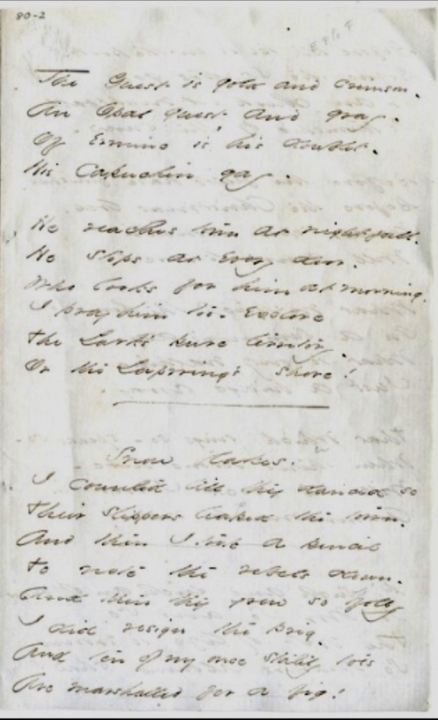 80-2
The Guest is gold and crimson.
An Opal guest, and gray.
Of Ermine is his doublet.
His Capuchin gay.
He reaches town at nightfall.
He stops at every door.
Who looks for him at morning,
I pray him too. Explore
The Lark's pure territory.
Or the Lapwing's shore!
Snow flakes.
I counted till they danced so
Their slippers leaped the town.
And then I took a pencil
To note the rebels down.
And then they grew so jolly
I did resign the prig.
And ten of my once stately toes
Are marshalled for a jig!